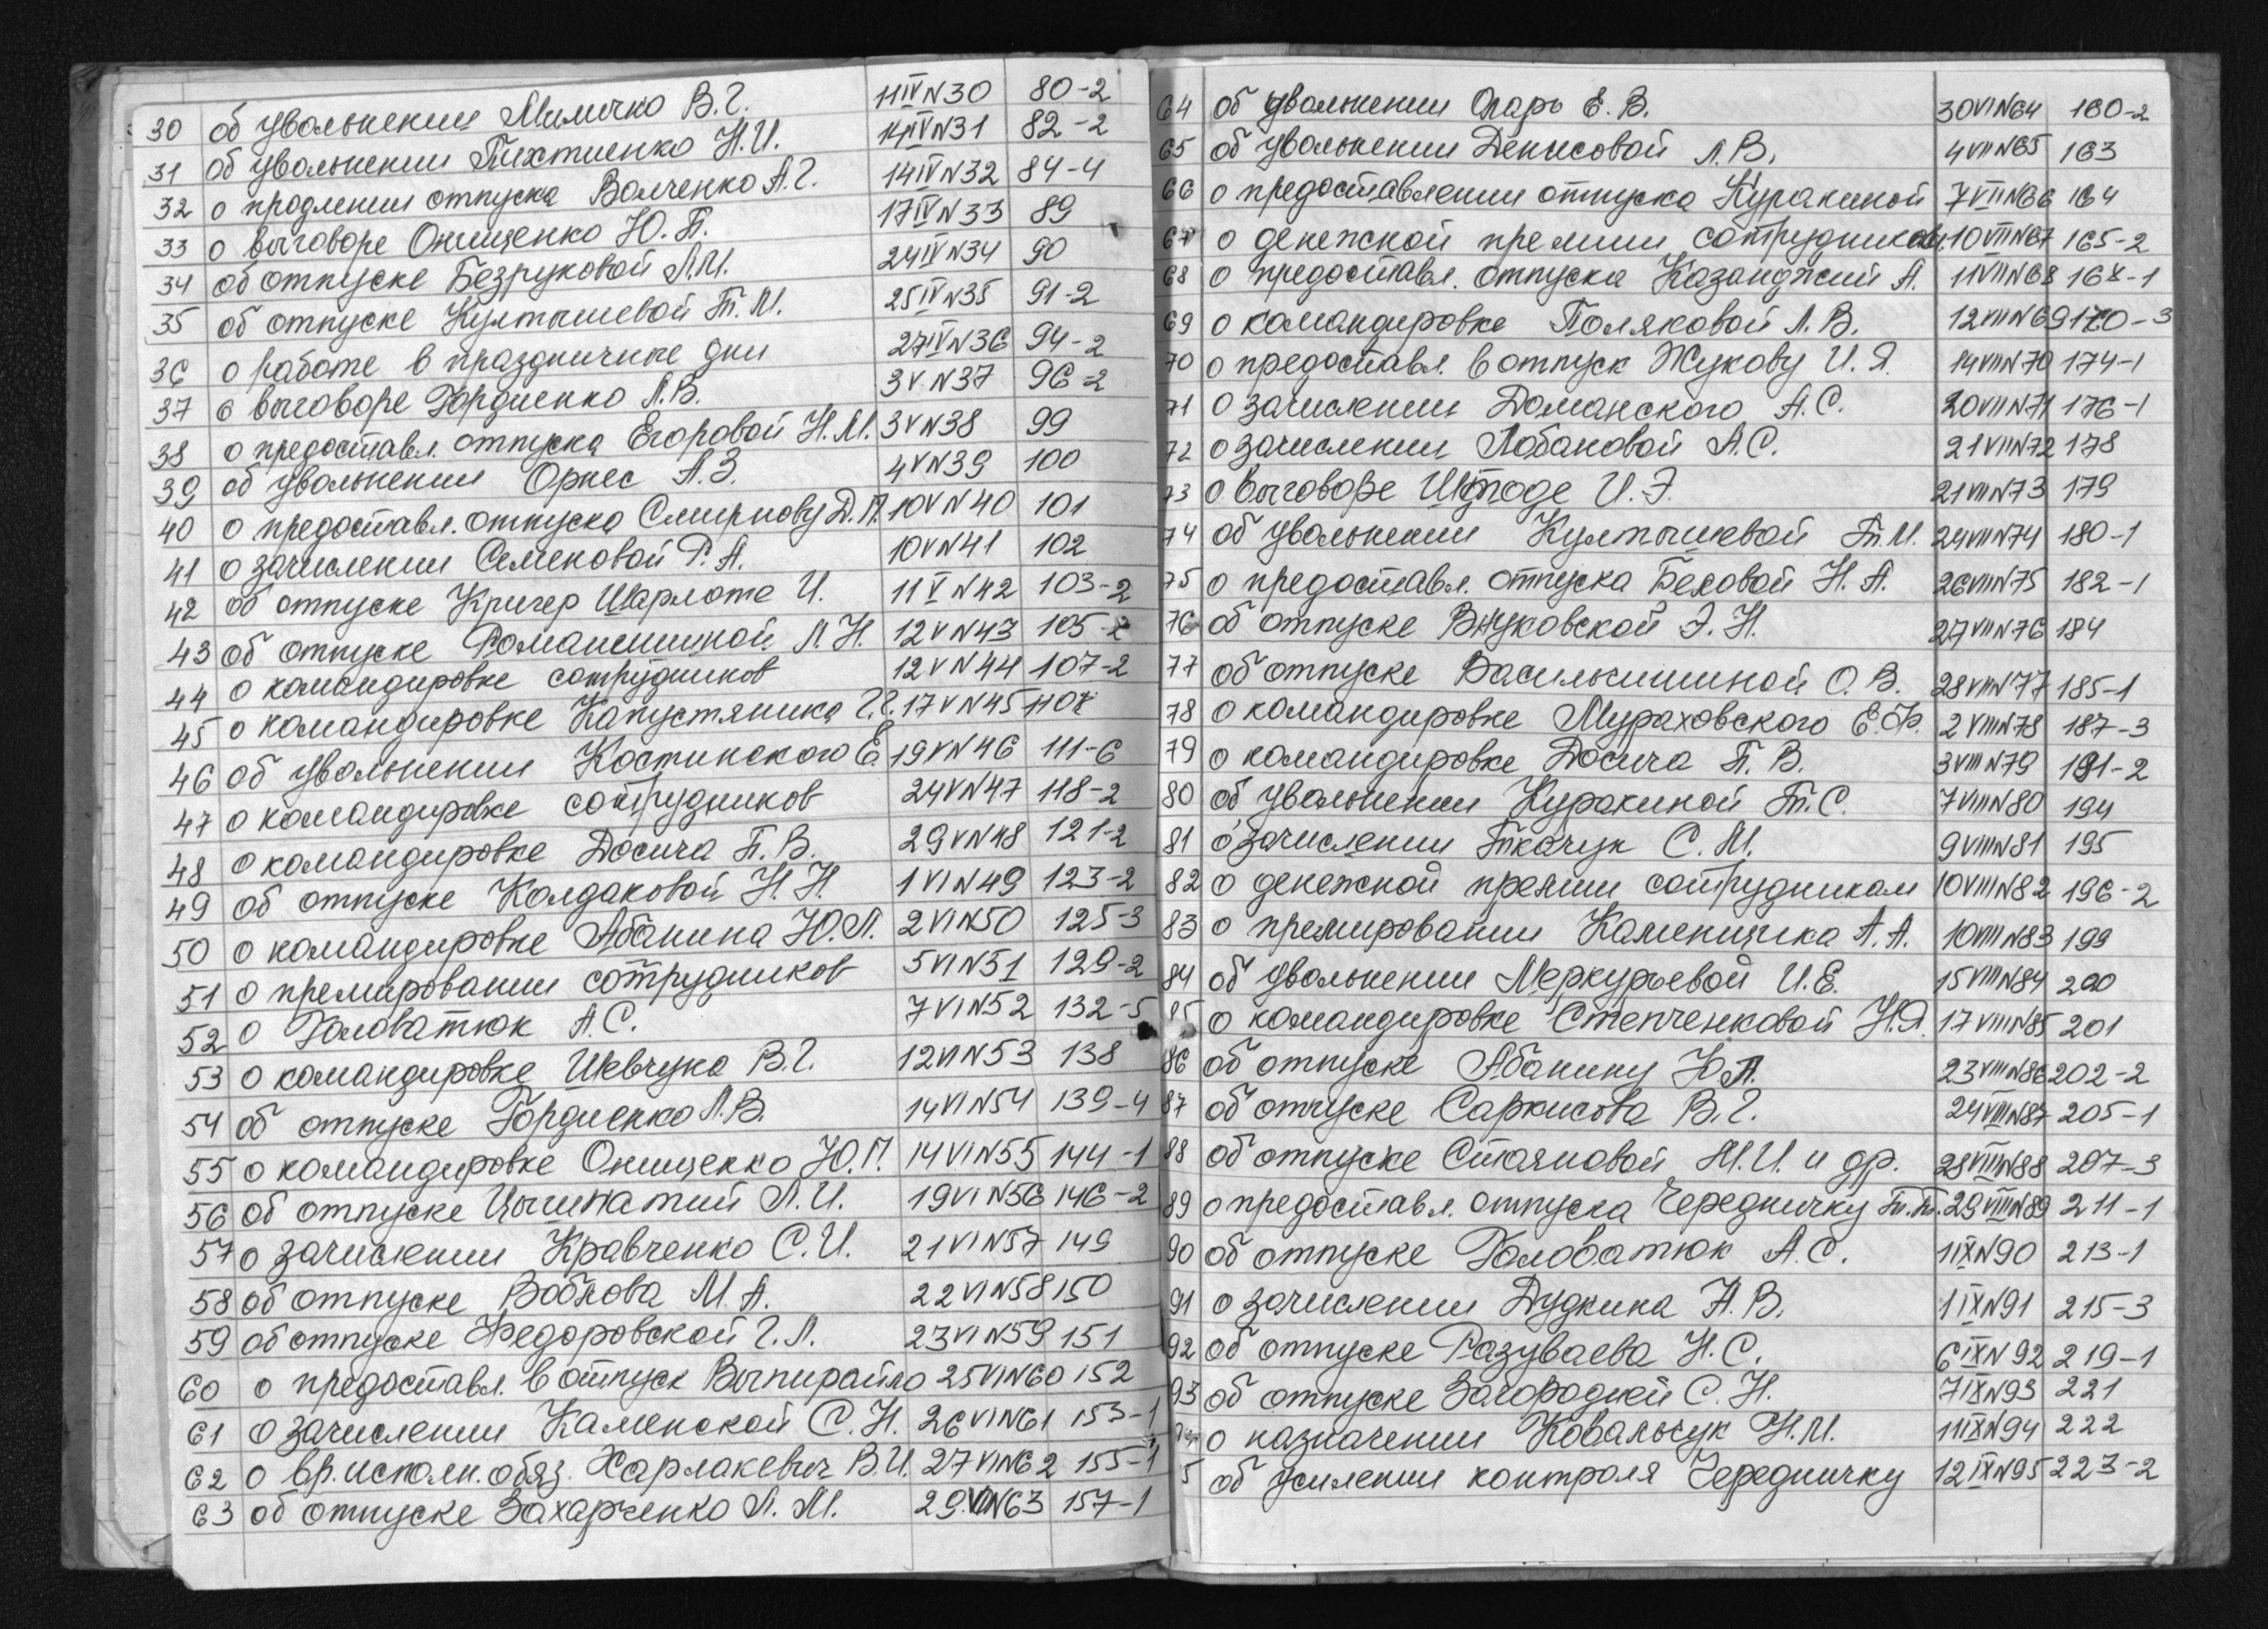 30 об увольнении Мамичко В.Г. 11 IV N30 80-2
31 об увольнении Тихтиенко Н.И. 14 IV N31 82-2
32 о продлении отпуска Волченко А.Г. 14 IV N32 84-4
33 о выговоре Онищенко Ю.П. 17 IV N33 89
34 об отпуске Безруковой Л.М. 24 IV N34 90
35 об отпуске Култышевой Т.М. 25 IV N35 91-2
36 о работе в праздничные дни 27 IV N36 94-2
37 о выговоре Гордиенко Л.В. 3 V N37 96-2
38 о предоставл. отпуска Егоровой Н.М. 3 V N38 99
39 об увольнении Орнес А.З. 4 V N39 100
40 о предоставл. отпуска Смирнову Д.П. 10 V N40 101
41 о зачислении Семеновой Р.А. 10 V N41 102
42 об отпуске Кригер Шарлота И. 11 V N42 103-2
43 об отпуске Романишиной Л.Н. 12 V N43 105-2
44 о командировке сотрудников 12 V N44 107-2
45 о командировке Капустяника Г.Г. 17 V N45 110
46 об увольнении Костинского Е. 19 V N46 111-6
47 о командировке сотрудников 24 V N47 118-2
48 о командировке Досича П.В. 29 V N48 121-2
49 об отпуске Колдаковой Н.Н. 1 VI N49 123-2
50 о командировке Абанина Ю.Л. 2 VI N50 125-3
51 о премировании сотрудников 5 VI N51 129-2
52 о Головатюк А.С. 7 VI N52 132-5
53 о командировке Шевчука В.Г. 12 VI N53 138
54 об отпуске Гордиенко Л.В. 14 VI N54 139-4
55 о командировке Онищенко Ю.П. 14 VI N55 144-1
56 об отпуске Цычинатий Л.И. 19 VI N56 146-2
57 о зачислении Кравченко С.И. 21 VI N57 149
58 об отпуске Бобкова М.А. 22 VI N58 150
59 об отпуске Федоровской Г.Л. 23 VI N59 151
60 о предоставл. в отпуск Выпирайло 25 VI N60 152
61 о зачислении Каменской С.Н. 26 VI N61 153-1
62 о вр. исполн. обяз. Харлакевич В.И. 27 VI N62 155-1
63 об отпуске Захарченко Л.М. 29 VI N63 157-1
64 об увольнении Огарь Е.В. 30 VI N64 160-2
65 об увольнении Денисовой Л.В. 4 VII N65 163
66 о предоставлении отпуска Куракиной 7 VII N66 164
67 о денежной премии сотрудникам 10 VII N67 165-2
68 о предоставл. отпуска Казанджий А. 11 VII N68 168-1
69 о командировке Поляковой Л.В. 12 VII N69 170-3
70 о предоставл. в отпуск Жукову И.Я. 14 VII N70 174-1
71 о зачислении Доманского А.С. 20 VII N71 176-1
72 о зачислении Лобановой А.С. 21 VII N72 178
73 о выговоре Штоде И.Э. 21 VII N73 179
74 об увольнении Култышевой Т.М. 24 VII N74 180-1
75 о предоставл. отпуска Беловой Н.А. 26 VII N75 182-1
76 об отпуске Внуковской Э.Н. 27 VII N76 184
77 об отпуске Васильишиной О.В. 28 VII N77 185-1
78 о командировке Мураховского Е.Ф. 2 VIII N78 187-3
79 о командировке Досича П.В. 3 VIII N79 191-2
80 об увольнении Куракиной Т.С. 7 VIII N80 194
81 о зачислении Ткачук С.М. 9 VIII N81 195
82 о денежной премии сотрудникам 10 VIII N82 196-2
83 о премировании Каменщика А.А. 10 VIII N83 199
84 об увольнении Меркурьевой И.Е. 15 VIII N84 200
85 о командировке Степченковой Н.Я. 17 VIII N85 201
86 об отпуске Абанину Ю.Л. 23 VIII N86 202-2
87 об отпуске Саркисова В.Г. 24 VIII N87 205-1
88 об отпуске Стояновой М.И. и др. 28 VIII N88 207-3
89 о предоставл. отпуска Чередничку Т.Т. 29 VIII N89 211-1
90 об отпуске Головатюк А.С. 1 IX N90 213-1
91 о зачислении Дудкина А.В. 1 IX N91 215-3
92 об отпуске Разуваева Н.С. 6 IX N92 219-1
93 об отпуске Загородней С.Н. 7 IX N93 221
о назначении Ковальчук Н.М. 11 IX N94 222
5 об усилении контроля Чередничку 12 IX N95 223-2